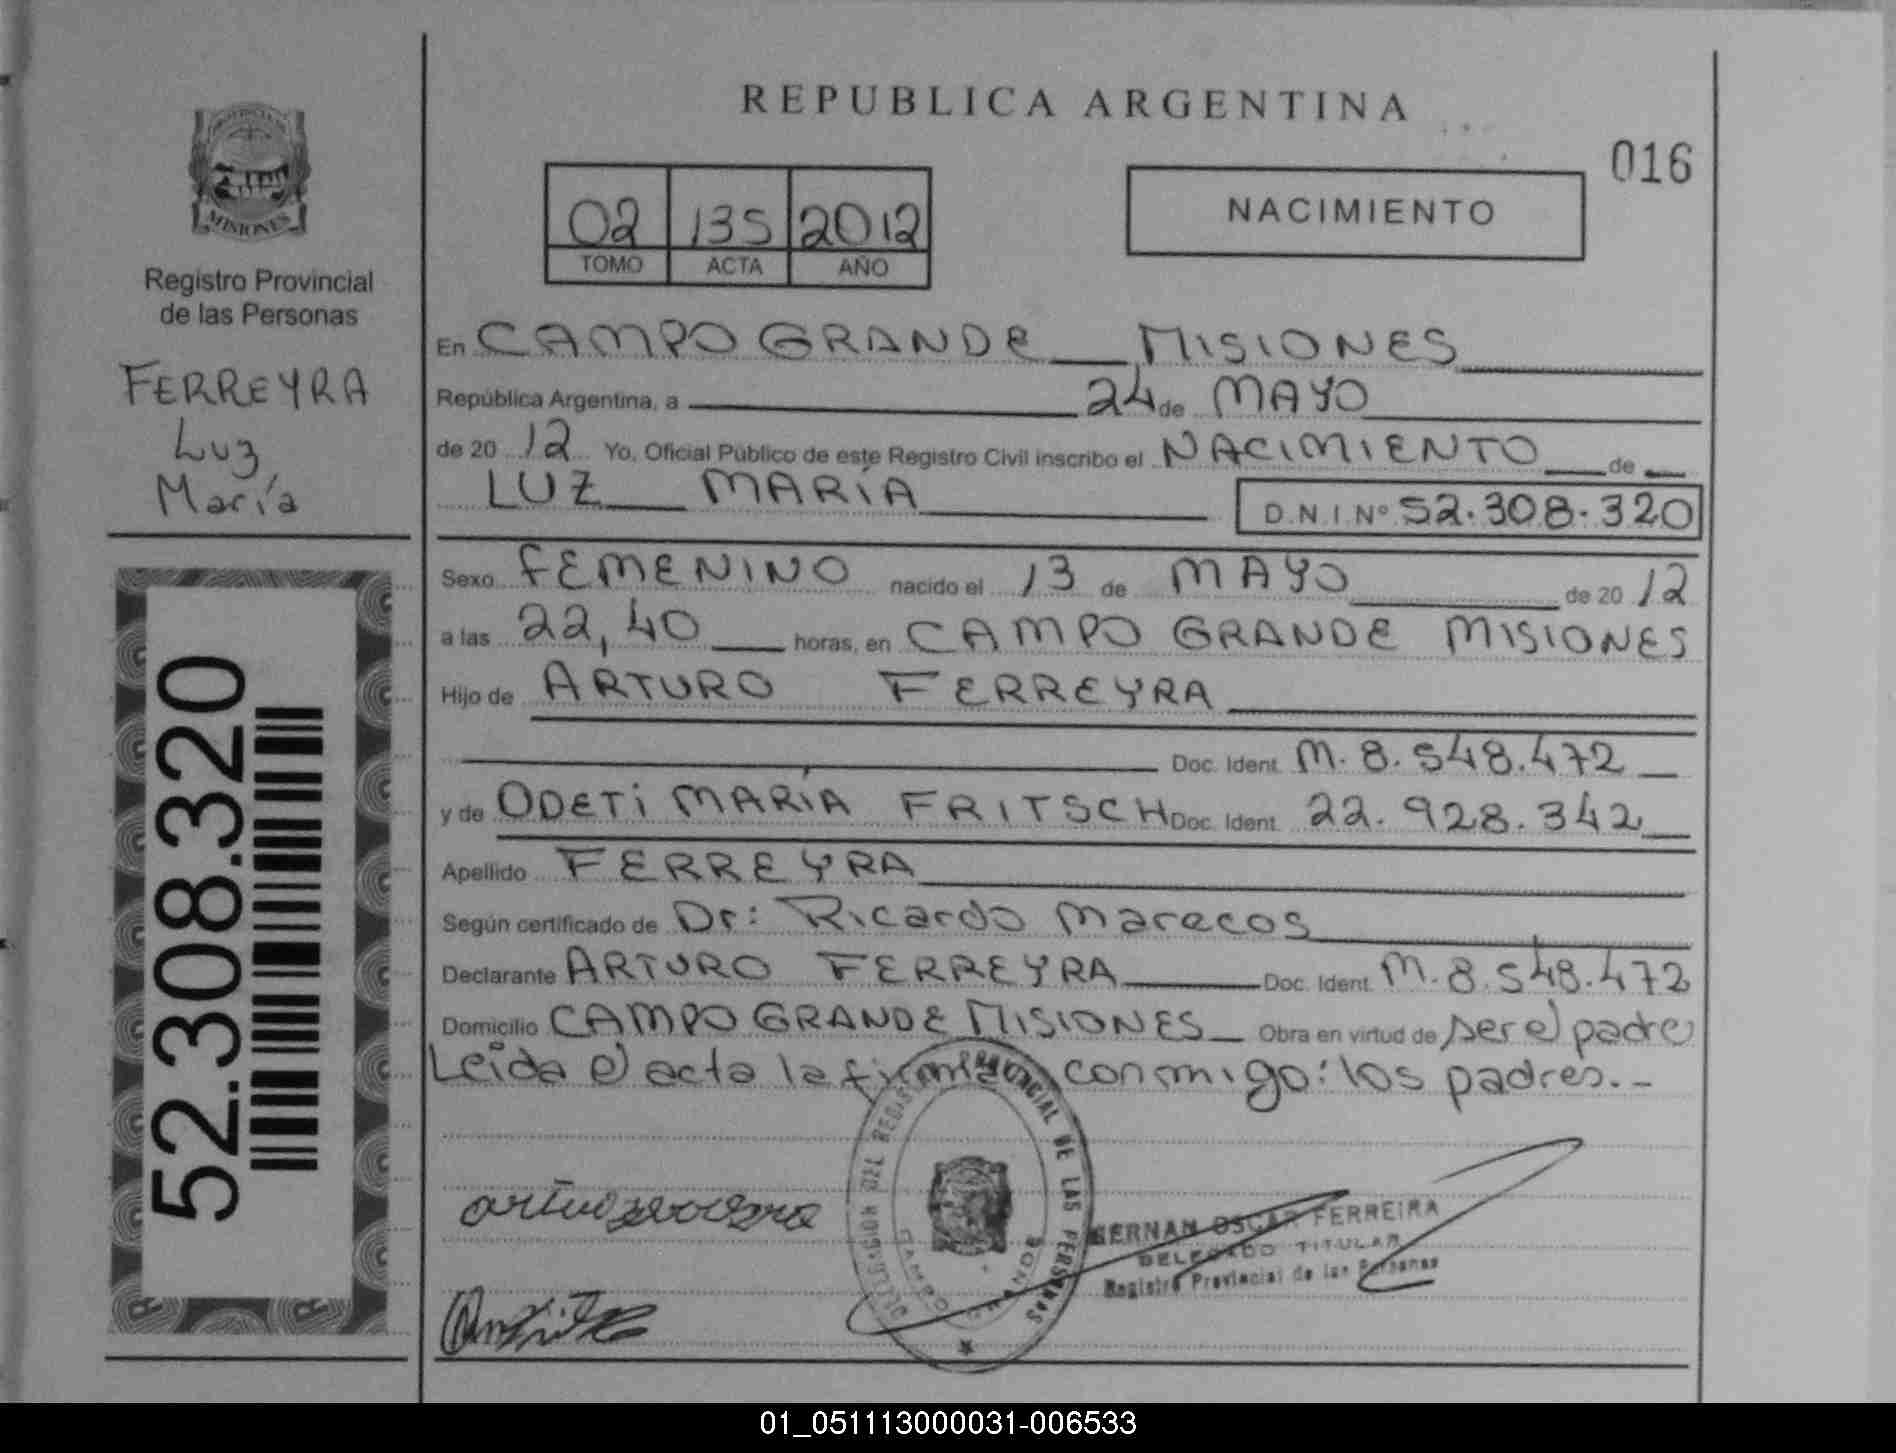 REPUBLICA ARGENTINA
016
MISIONES
Registro Provincial
de las Personas
FERREYRA
Luz
María
52.308.320
02 135 2012
TOMO ACTA AÑO
NACIMIENTO
En CAMPO GRANDE MISIONES
República Argentina, a 24 de MAYO
de 20 12 Yo, Oficial Público de este Registro Civil inscribo el NACIMIENTO de
LUZ MARÍA D.N.I Nº 52.308.320
Sexo FEMENINO nacido el 13 de MAYO de 20 12
a las 22,40 horas, en CAMPO GRANDE MISIONES
Hijo de ARTURO FERREYRA
Doc. Ident. M. 8.548.472
y de ODETI MARÍA FRITSCH Doc. Ident. 22.928.342
Apellido FERREYRA
Según certificado de Dr: Ricardo Marecos
Declarante ARTURO FERREYRA Doc. Ident. M.8.548.472
Domicilio CAMPO GRANDE MISIONES Obra en virtud de ser el padre
Leida el acta la firman conmigo: los padres.-
DELEGACION DEL REGISTRO PROVINCIAL DE LAS PERSONAS
CAMPO GRANDE
HERNAN OSCAR FERREIRA
DELEGADO TITULAR
Registro Provincial de las Personas
01_051113000031-006533